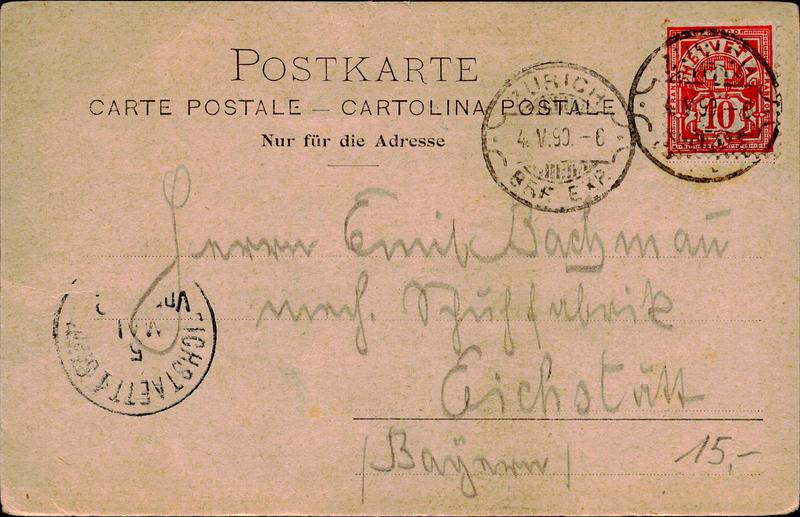 POSTKARTE
CARTE POSTALE – CARTOLINA POSTALE
Nur für die Adresse
ZÜRICH
4. V. 99. – 6
BRF. EXP.
HELVETIA
10
Herrn Emil Bachman̄
mech. Schuhfabrik
Eichstätt
(Bayern)
15,-
EICHSTAETT 1
5
MAI
Vor